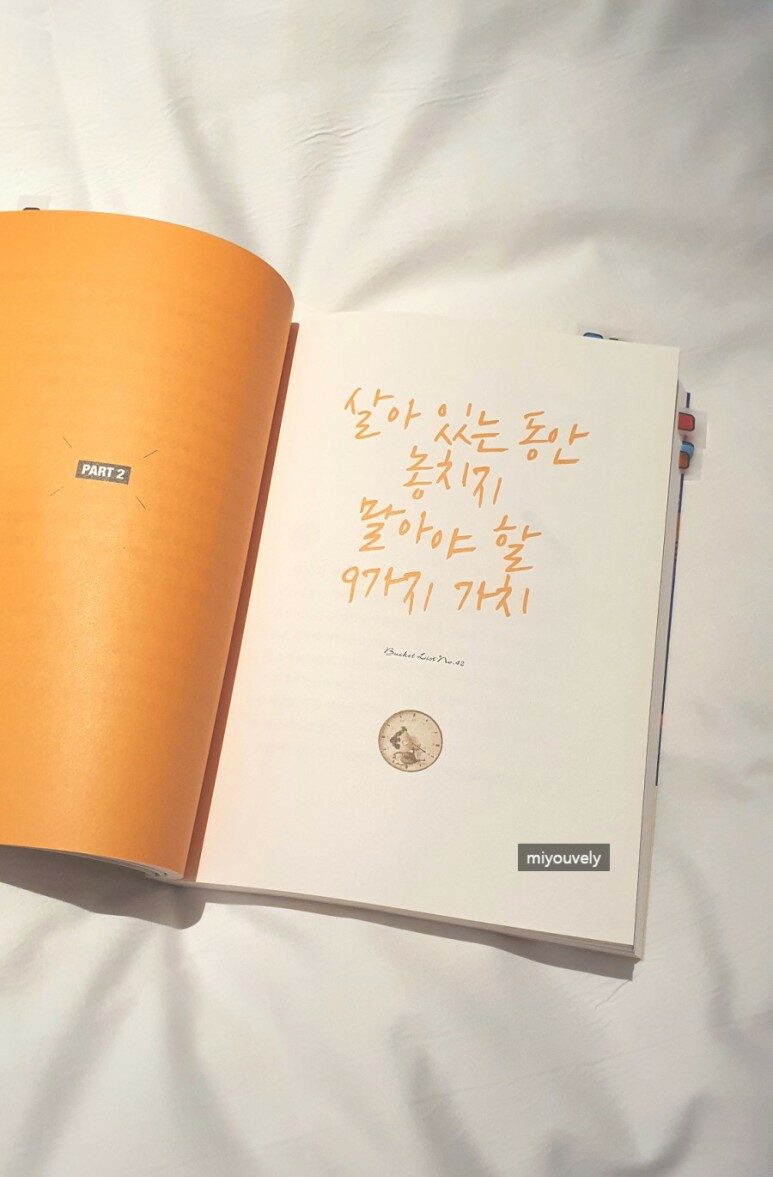 PART 2
살아 있는 동안
놓치지
말아야 할
9가지 가치
Bucket List No.42
miyouvely